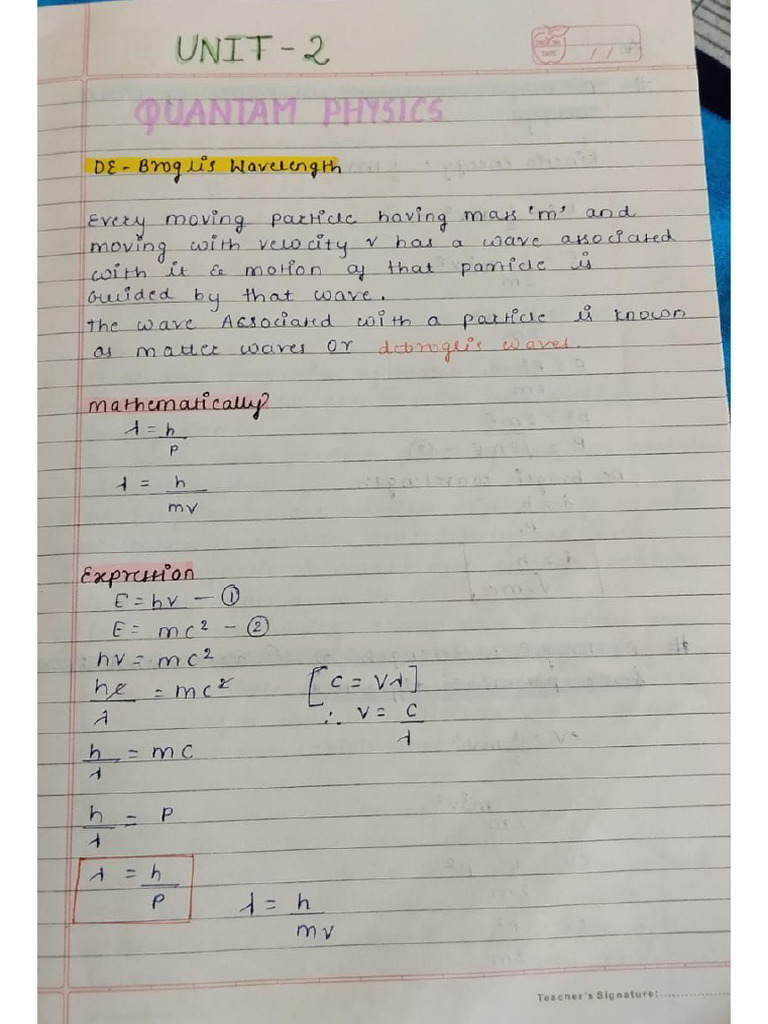 UNIT-2
DATE
QUANTAM PHYSICS
DE-Broglis Wavelength
Every moving particle having mass 'm' and
moving with velocity v has a wave associated
with it & motion of that particle is
Guided by that wave.
The wave Associated with a particle is known
as matter waves or debroglis waves.
Mathematically?
λ = h/p
λ = h/mv
Expression
E = hν — ①
E = mc² — ②
hν = mc²
hc/λ = mc² [c = νλ]
∴ ν = c/λ
h/λ = mc
h/λ = P
λ = h/P λ = h/mv
Teacher's Signature:..................